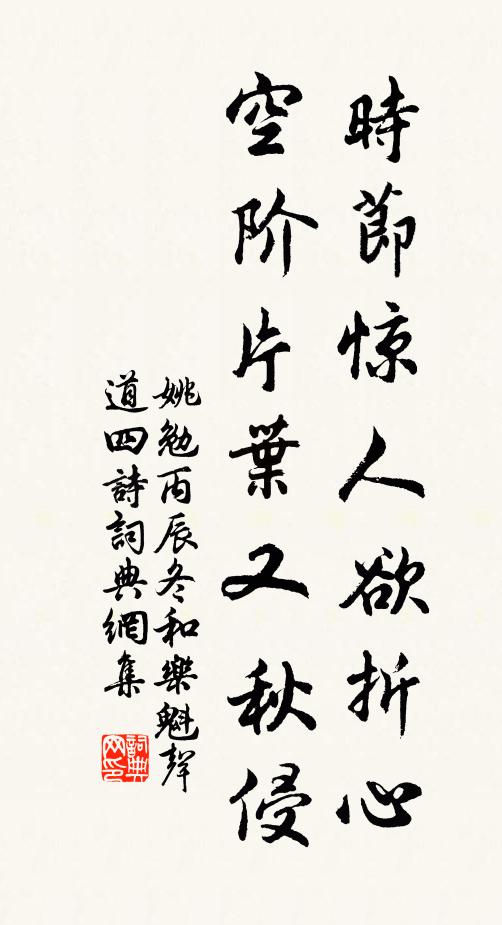 時節惊人欲折心
空阶片葉又秋侵
姚勉丙辰冬和樂魁聲
道四詩詞典網集
詞典
网印